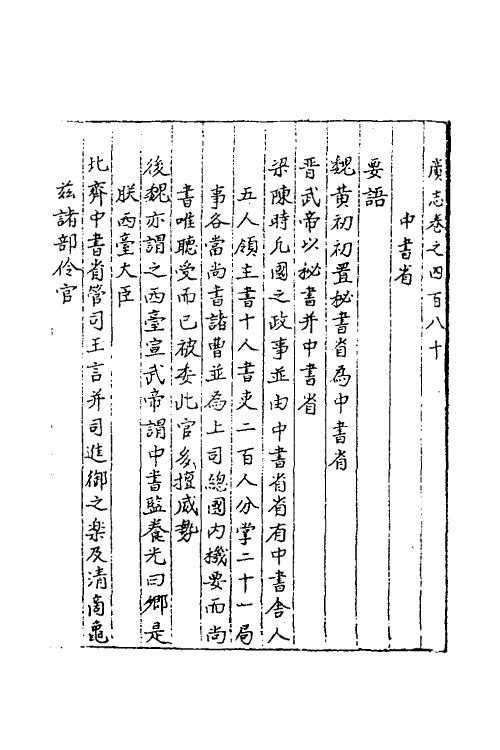 廣志卷之四百八十
中書省
要語
魏黃初初置秘書省為中書省
晋武帝以秘書并中書省
梁陳時凡國之政事並由中書省省有中書舍人
五人領主書十人書吏二百人分掌二十一局
事各當尚書諸曹並為上司總國内機要而尚
書唯聽受而已被委此官多擅威勢
後魏亦謂之西臺宣武帝謂中書監崔光曰卿是
朕西臺大臣
北齊中書省管司王言并司進御之楽及清商龜
兹諸部伶官